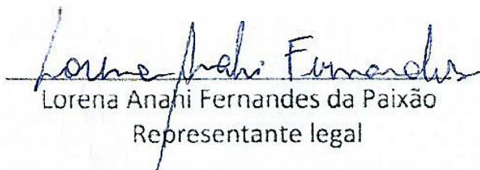 Lorena Anahi Fernandes
Lorena Anahi Fernandes da Paixão
Representante legal